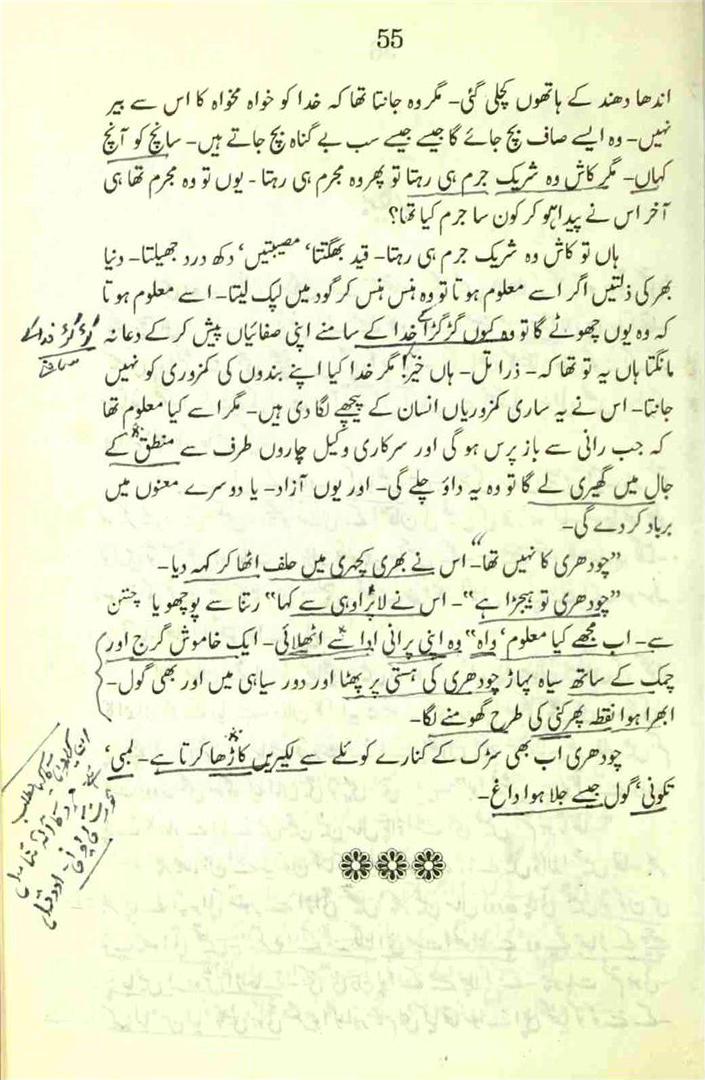 55
اندھا دھند کے ہاتھوں کچلی گئی۔ مگر وہ جانتا تھا کہ خدا کو خواہ مخواہ کا اس سے بیر
نہیں۔ وہ ایسے صاف بچ جائے گا جیسے جیسے سب بے گناہ بچ جاتے ہیں۔ سانچ کو آنچ
کہاں۔ مگر کاش وہ شریک جرم ہی رہتا تو پھر وہ مجرم ہی رہتا۔ یوں تو وہ مجرم تھا ہی
آخر اس نے پیدا ہو کر کون سا جرم کیا تھا؟
ہاں تو کاش وہ شریک جرم ہی رہتا۔ قید بھگتتا، مصیبتیں، دکھ درد جھیلتا۔ دنیا
بھر کی ذلتیں اگر اسے معلوم ہوتا تو وہ ہنس ہنس کر گود میں لپک لیتا۔ اسے معلوم ہوتا
کہ وہ یوں چھوٹے گا تو وہ کیوں گڑگڑا کے خدا کے سامنے اپنی صفائیاں پیش کر کے دعا نہ
مانگتا ہاں یہ تو تھا کہ۔ ذرا تل۔ ہاں خیر! مگر خدا کیا اپنے بندوں کی کمزوری کو نہیں
جانتا۔ اس نے یہ ساری کمزوریاں انسان کے پیچھے لگا دی ہیں۔ مگر اسے کیا معلوم تھا
کہ جب رانی سے باز پرس ہو گی اور سرکاری وکیل چاروں طرف سے منطق کے
جال میں گھیری لے گا تو وہ یہ داؤ چلے گی۔ اور یوں آزاد۔ یا دوسرے معنوں میں
برباد کر دے گی۔
”چودھری کا نہیں تھا“۔ اس نے بھری کچہری میں حلف اٹھا کر کہہ دیا۔
”چودھری تو ہیجڑا ہے“۔ اس نے لاپراوہی سے کہا ”رتنا سے پوچھو یا چنتن
سے۔ اب مجھے کیا معلوم، واہ“ وہ اپنی پرانی ادا سے اٹھلائی۔ ایک خاموش گرج اور
چمک کے ساتھ سیاہ پہاڑ چودھری کی ہستی پر پھٹا اور دور سیاہی میں اور بھی گول۔
ابھرا ہوا نقطہ پھرکنی کی طرح گھومنے لگا۔
چودھری اب بھی سڑک کے کنارے کوئلے سے لکیریں کاڑھا کرتا ہے۔ لمبی،
تکونی، گول جیسے جلا ہوا داغ۔